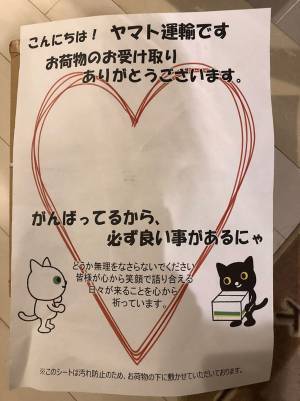 こんにちは！ ヤマト運輸です
お荷物のお受け取り
ありがとうございます。
がんばってるから、
必ず良い事があるにゃ
どうか無理をなさらないでください
皆様が心から笑顔で語り合える
日々が来ることを心から
祈っています。
※このシートは汚れ防止のため、お荷物の下に敷かせていただいております。